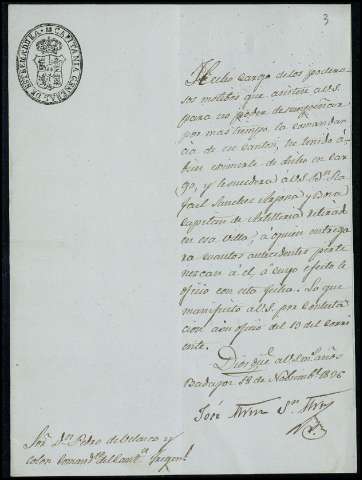 3
CAPITANIA GENERAL DE ESTREMADURA
Hecho cargo de los podero-
sos motibos que asisten a V.S.
para no poder desempeñar
por mas tiempo la comandan-
cia de ese Canton, he tenido á
bien eximirle de dicho en car-
go, y le sucederá á V.S. Dn. Ra-
fael Sanchez Arjona y
Capitan de Artilleria retirado
en esa villa, á quien entrega-
ra cuantos antecedentes perte-
nezcan á él, á cuyo efecto le
oficio con esta fecha. Lo que
manifiesto a V.S. por contesta-
cion a su oficio del 10 del corri-
ente.
Dios gue. a V.S. ms. años
Badajoz 18 de Nobiembe.
José Sn.
Sor. Dn. Pedro de Velasco y
Colon Comande. del Cant.